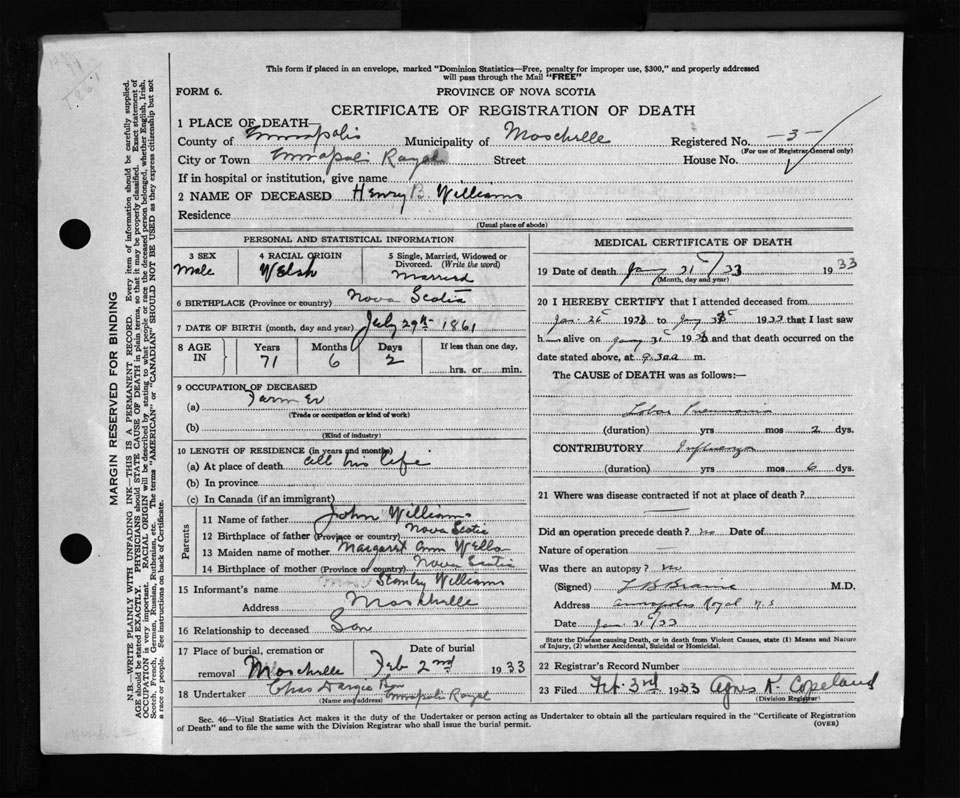 This form if placed in an envelope, marked "Dominion Statistics—Free, penalty for improper use, $300," and properly addressed
will pass through the Mail "FREE"
FORM 6.
PROVINCE OF NOVA SCOTIA
CERTIFICATE OF REGISTRATION OF DEATH
MARGIN RESERVED FOR BINDING
N.B.—WRITE PLAINLY WITH UNFADING INK—THIS IS A PERMANENT RECORD. Every item of information should be carefully supplied.
AGE should be stated EXACTLY. PHYSICIANS should STATE CAUSE OF DEATH in plain terms, so that it may be properly classified. Exact statement of
OCCUPATION is very important. RACIAL ORIGIN will be described by stating to what people or race the deceased person belonged, whether English, Irish,
Scotch, French, German, Russian, Ruthenian, etc. The terms "AMERICAN" or "CANADIAN" SHOULD NOT BE USED as they express citizenship but not
a race or people. See instructions on back of Certificate.
1 PLACE OF DEATH—
County of Annapolis Municipality of Moschelle Registered No. —3—
(For use of Registrar General only)
City or Town Annapolis Royal Street House No.
If in hospital or institution, give name
2 NAME OF DECEASED Henry B. Williams
Residence
(Usual place of abode)
PERSONAL AND STATISTICAL INFORMATION
3 SEX
Male
4 RACIAL ORIGIN
Welsh
5 Single, Married, Widowed or
Divorced. (Write the word)
Married
6 BIRTHPLACE (Province or country) Nova Scotia
7 DATE OF BIRTH (month, day and year) July 29th 1861
8 AGE IN
Years Months Days If less than one day,
71 6 2 hrs. or min.
9 OCCUPATION OF DECEASED
(a) Farmer
(Trade or occupation or kind of work)
(b)
(Kind of industry)
10 LENGTH OF RESIDENCE (in years and months)
(a) At place of death all his life
(b) In province
(c) In Canada (if an immigrant)
Parents
11 Name of father John Williams
12 Birthplace of father (Province or country) Nova Scotia
13 Maiden name of mother Margaret Ann Wells
14 Birthplace of mother (Province or country) Nova Scotia
15 Informant's name Stanley Williams
Address Moschelle
16 Relationship to deceased Son
17 Place of burial, cremation or removal Moschelle
Date of burial
Feb 2nd 1933
18 Undertaker Chas Dargie Annapolis Royal
(Name and address)
MEDICAL CERTIFICATE OF DEATH
19 Date of death Jany 31/33 1933
(Month, day and year)
20 I HEREBY CERTIFY that I attended deceased from
Jan. 26 1933 to Jany 1933 that I last saw
h alive on Jany 31 193 and that death occurred on the
date stated above, at 9.30 a m.
The CAUSE of DEATH was as follows:—
Lobar Pneumonia
(duration) yrs mos 2 dys.
CONTRIBUTORY Influenza
(duration) yrs mos 6 dys.
21 Where was disease contracted if not at place of death?
Did an operation precede death? no Date of
Nature of operation —
Was there an autopsy? no
(Signed) L B Braine M.D.
Address Annapolis Royal N.S
Date Jan. 31/33
State the Disease causing Death, or in death from Violent Causes, state (1) Means and Nature
of Injury, (2) whether Accidental, Suicidal or Homicidal.
22 Registrar's Record Number
23 Filed Feb. 3rd 1933 Agnes K. Copeland
(Division Registrar)
Sec. 46—Vital Statistics Act makes it the duty of the Undertaker or person acting as Undertaker to obtain all the particulars required in the "Certificate of Registration
of Death" and to file the same with the Division Registrar who shall issue the burial permit.
(OVER)